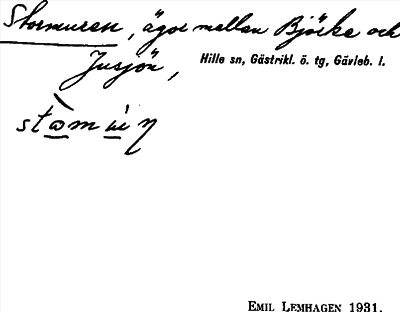 Stormuren, ägor mellan Björke och
Jusjön,
Hille sn, Gästrikl. ö. tg, Gävleb. l.
EMIL LEMHAGEN 1931.